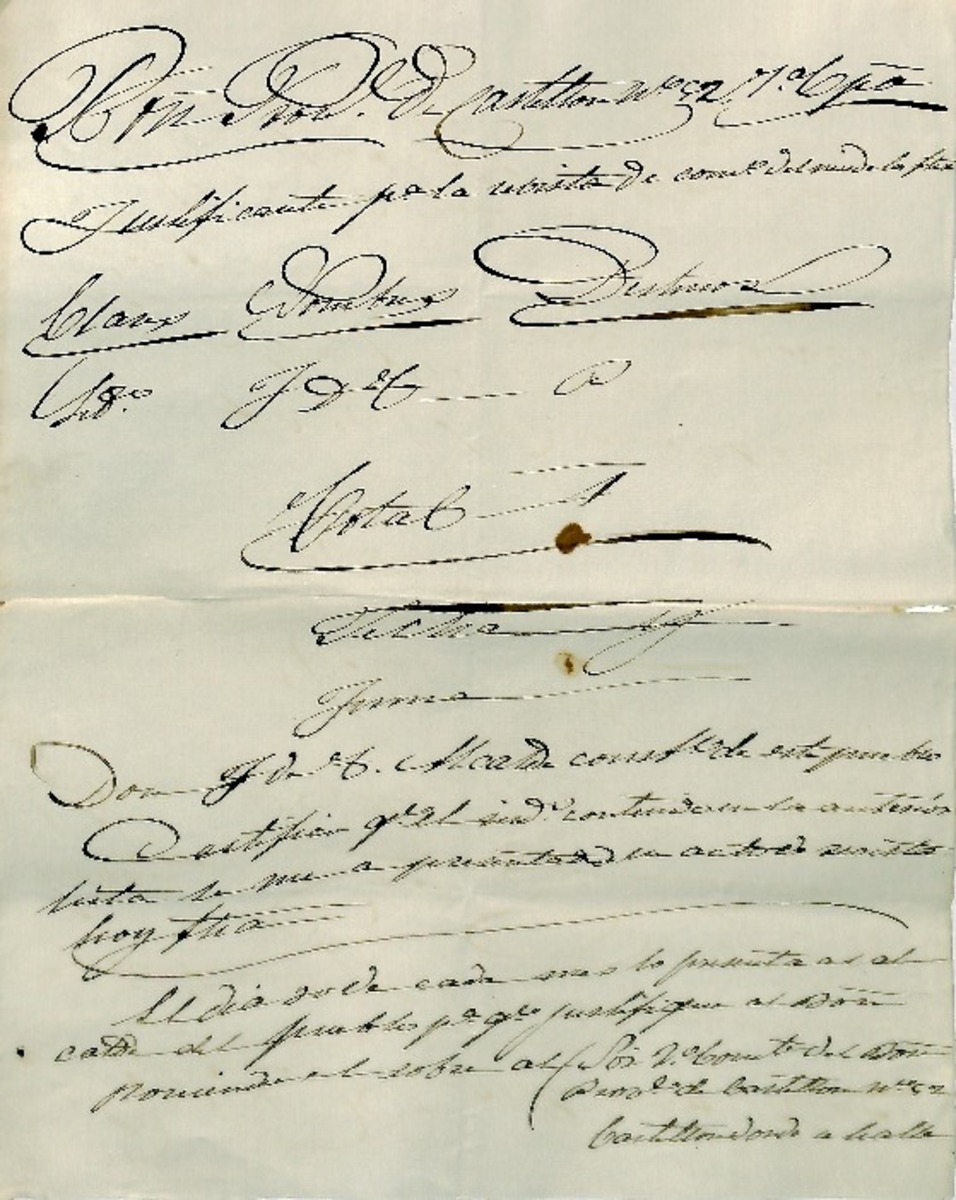 Bon Prov. de Castellon nº 52, 7ª Cpª
Justificante pª la revista de comº del mes de la fha
Clases Nombres Destinos
Sdos J D C P
Total 1
Fecha
Firma
Don J de C. Alcalde constl de este pueblo
Certifico qe el sindº contenido en la anterior
lista se me a presentado en acto de revista
hoy fha
El dia 20 de cada mes lo presentaras al al
calde del pueblo pª qe justifique al Bon
poniendo el sobre al Sor 2º Comte del Bon
Provl de Castellon nº 52
Castellon donde se halle